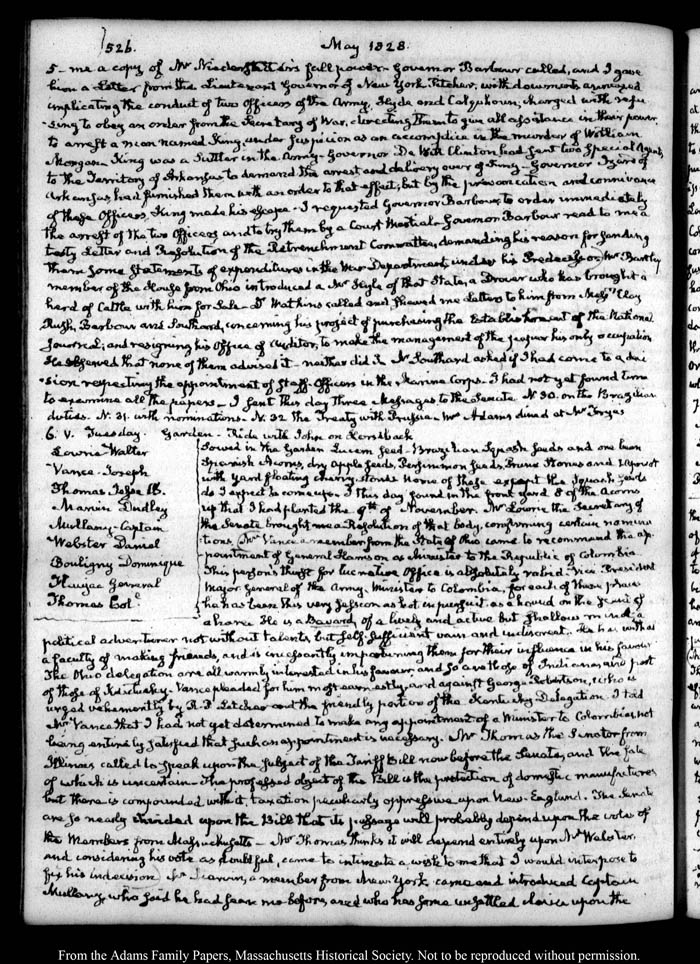 526.
May 1828.
5 - me a copy of Mr Niederstetter's full power - Governor Barbour called, and I gave
him a Letter from the Lieutenant Governor of New York, Pitcher, with documents annexed
implicating the conduct of two Officers of the Army, Hyde and Colquhoun, charged with refu-
-sing to obey an order from the Secretary of War, directing them to give all assistance in their power
to arrest a man named King, under suspicion as an accomplice in the murder of William
Morgan - King was a Suttler in the Army - Governor De Witt Clinton had sent two Special Agents
to the Territory of Arkansas to demand the arrest and delivery over of King - Governor Izard of
Arkansas had furnished them with an order to that effect, but by the prevarication and connivance
of these Officers, King made his escape - I requested Governor Barbour to order immediately
the arrest of the two Officers and to try them by a Court Martial - Governor Barbour read to me a
testy Letter and Resolution of the Retrenchment Committee, demanding his reason for sending
them some statements of expenditures in the War Department, under his Predecessor, Mr Bartley
member of the House from Ohio introduced a Mr Hyle of that State, a Drover who has brought a
herd of Cattle with him for Sale - Dr Watkins called and shewed me Letters to him from Messrs Clay
Rush, Barbour and Southard, concerning his project of purchasing the Establishment of the National
Journal; and resigning his Office of Auditor, to make the management of the paper his only occupation
He observed that none of them advised it - neither did I. Mr Southard asked if I had come to a deci
-sion respecting the appointment of Staff-Officers in the Marine Corps - I had not yet found time
to examine all the papers - I sent this day three Messages to the Senate N. 30. on the Brazilian
duties. N. 31. with nominations. N. 32 The Treaty with Prussia. Mrs Adams dined at Mr Frye's
6. V. Tuesday. Garden - Ride with John on Horseback
Lowrie Walter
Vance - Joseph
Thomas Jesse B.
Marvin Dudley
Mullany - Captain
Webster Daniel
Bouligny Dominique
General
Thomas Col.
Sowed in the Garden Lucern seed - Brazilian Squash seeds and one bean
Spanish Acorns, dry apple seeds, Persimmon seeds, Prune Stones and
with yard floating cherry stones None of these except the Squash seeds
do I expect to come up. I this day found in the front yard 8 of the Acorns
up that I had planted the 9th of November. Mr Lowrie the Secretary of
the Senate brought me a Resolution of that body, confirming certain nomina
tions. Mr Vance a member from the State of Ohio came to recommend the ap-
-pointment of General Harrison as Minister to the Republic of Colombia
This person's thirst for lucrative Office is absolutely rabid - Vice President
Major General of the Army, Minister to Colombia, for each of these places
he has been this very Session as hot in pursuit as a hound on the scent of
a hare. He is a Bavard, of a lively and active but shallow mind, a
political adventurer not without talents but self-sufficient vain and indiscreet. He has withal
a faculty of making friends, and is incessantly importuning them for their influence in his favour
The Ohio delegation are all warmly interested in his favour, and so are those of Indiana and part
of those of Kentucky - Vance pleaded for him most earnestly, and against George Robertson, who is
urged vehemently by R. P. Letcher and the friendly portion of the Kentucky Delegation. I told
Mr Vance that I had not yet determined to make any appointment of a Minister to Colombia, not
being entirely satisfied that such an appointment is necessary. Mr Thomas the Senator from
Illinois called to speak upon the subject of the Tariff Bill now before the Senate, and the fate
of which is uncertain - The professed object of the Bill is the protection of domestic manufactures
but there is compounded with it, taxation peculiarly oppressive upon New-England. The Senate
are so nearly divided upon the Bill that its passage will probably depend upon the votes of
the Members from Massachusetts - Mr Thomas thinks it will depend entirely upon Mr Webster,
and considering his vote as doubtful, came to intimate a wish to me that I would interpose to
fix his indecision Mr Marvin, a member from New York came and introduced Captain
Mullany, who said he had seen me before, and who has some unsettled claim upon the
From the Adams Family Papers, Massachusetts Historical Society. Not to be reproduced without permission.